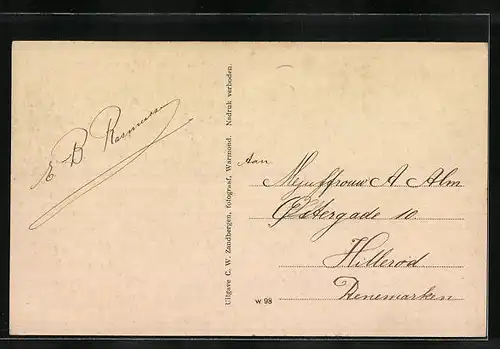 E B Rasmussen
Uitgave C. W. Zandbergen, fotograaf, Warmond. Nadruk verboden.
Aan
Mejuffrouw A Alm
Østergade 10
Hillerød
Denemarken
W 98